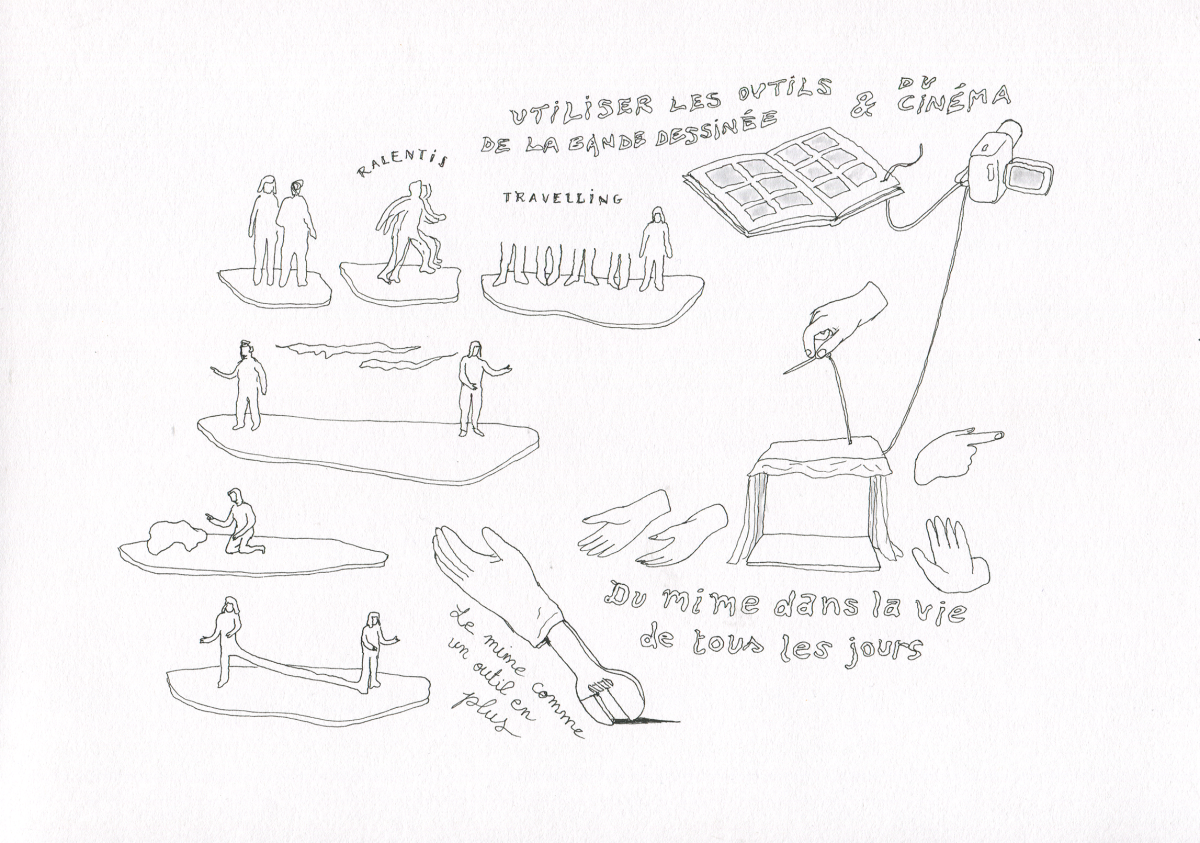 UTILISER LES OUTILS
DE LA BANDE DESSINÉE
& DU
CINÉMA
RALENTIS
TRAVELLING
Du mime dans la vie
de tous les jours
Le mime comme
un outil en
plus